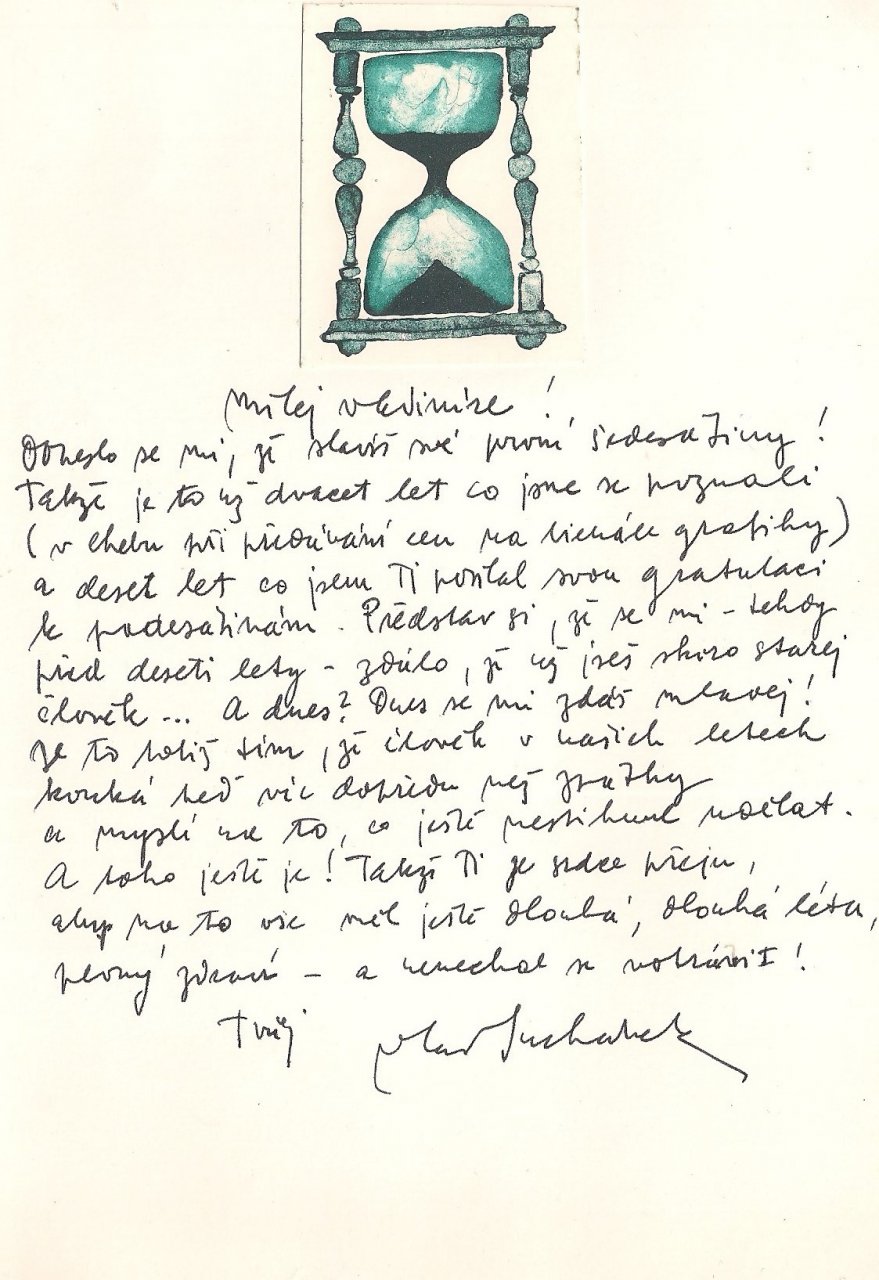 Milej Vladimíre!
Doneslo se mi, že slavíš své první šedesátiny!
Takže je to už dvacet let co jsme se poznali
(v Chebu při předávání cen na bienále grafiky)
a deset let co jsem Ti poslal svou gratulaci
k padesátinám. Představ si, že se mi - tehdy
před deseti lety - zdálo, že už jseš skoro starej
člověk... A dnes? Dnes se mi zdáš mladej!
Je to totiž tím, že člověk v našich letech
kouká teď víc dopředu než zpátky
a myslí na to, co ještě nestihnul udělat.
A toho ještě je! Takže Ti ze srdce přeju,
abys na to vše měl ještě dlouhá, dlouhá léta,
pevný zdraví - a nenechal se votrávit!
Tvůj Vlad Suchánek